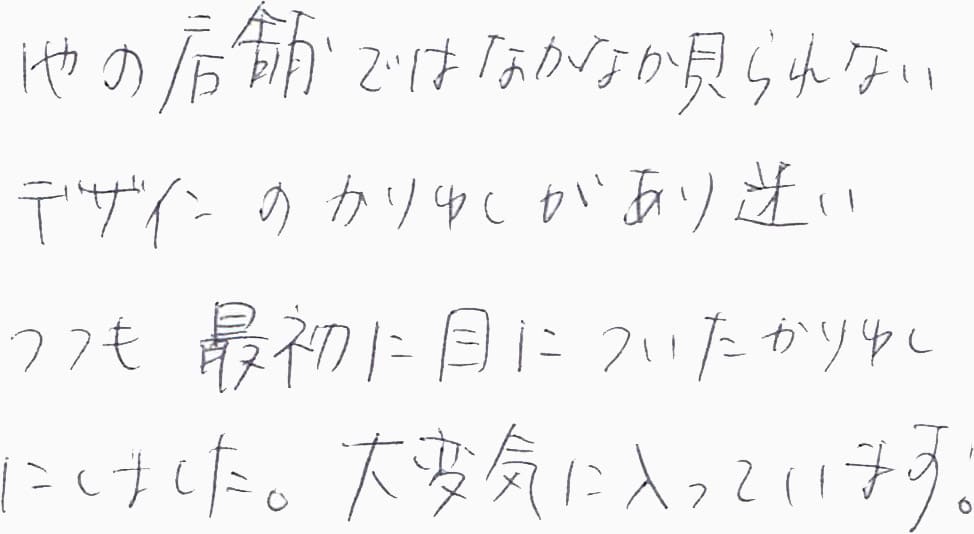 他の店舗ではなかなか見られない
デザインのかりゆしがあり迷い
つつも最初に目についたかりゆし
にしました。大変気に入っています。